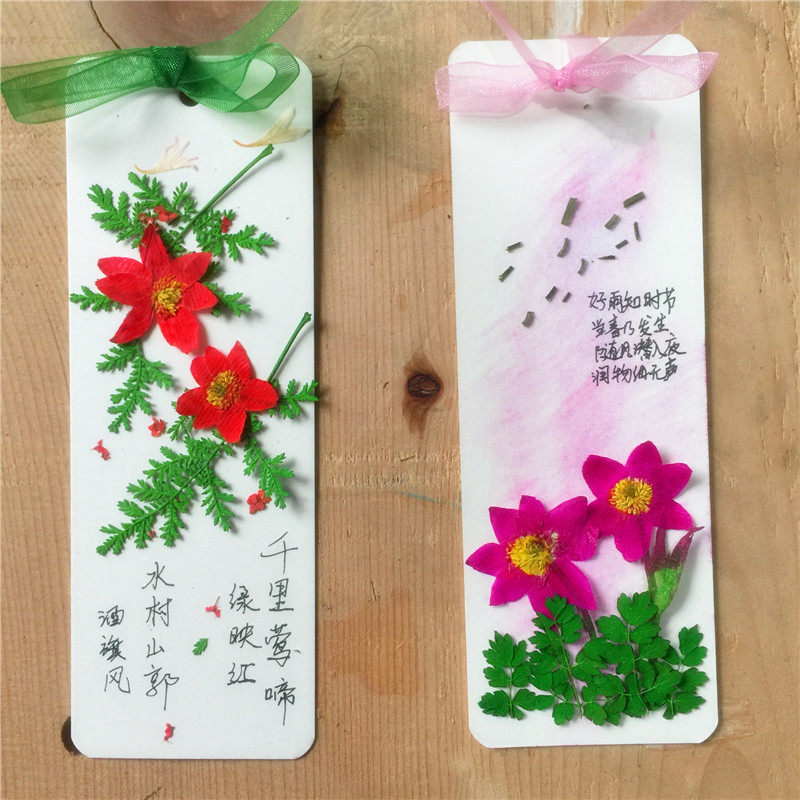 千里莺啼
绿映红
水村山郭
酒旗风
好雨知时节
当春乃发生
随风潜入夜
润物细无声